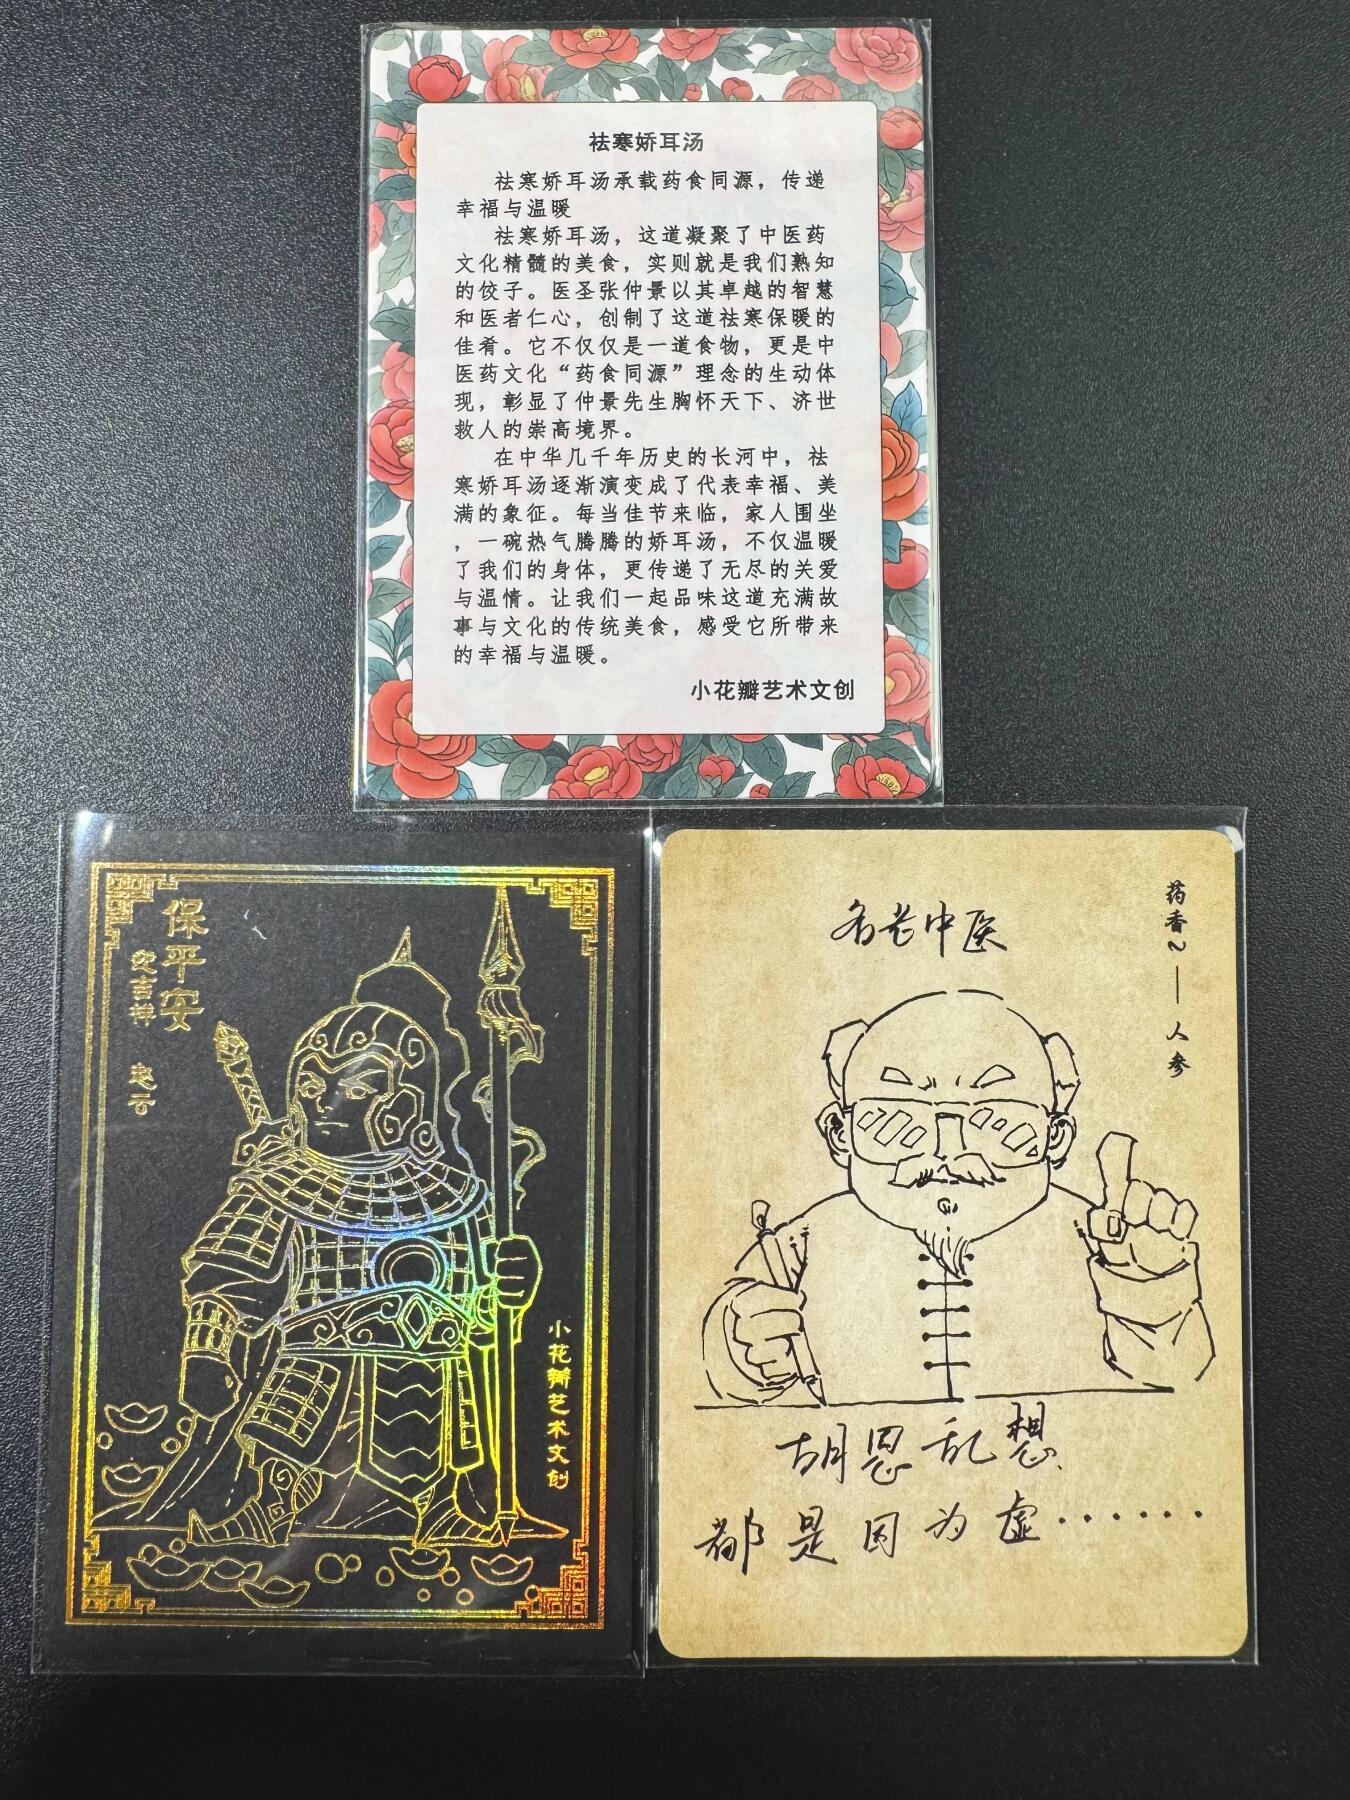 祛寒娇耳汤
祛寒娇耳汤承载药食同源，传递
幸福与温暖
祛寒娇耳汤，这道凝聚了中医药
文化精髓的美食，实则就是我们熟知
的饺子。医圣张仲景以其卓越的智慧
和医者仁心，创制了这道祛寒保暖的
佳肴。它不仅仅是一道食物，更是中
医药文化“药食同源”理念的生动体
现，彰显了仲景先生胸怀天下、济世
救人的崇高境界。
在中华几千年历史的长河中，祛
寒娇耳汤逐渐演变成了代表幸福、美
满的象征。每当佳节来临，家人围坐
，一碗热气腾腾的娇耳汤，不仅温暖
了我们的身体，更传递了无尽的关爱
与温情。让我们一起品味这道充满故
事与文化的传统美食，感受它所带来
的幸福与温暖。
小花瓣艺术文创
保平安
吉祥
赵云
小花瓣艺术文创
名老中医
药香～——人参
胡思乱想
都是因为虚······